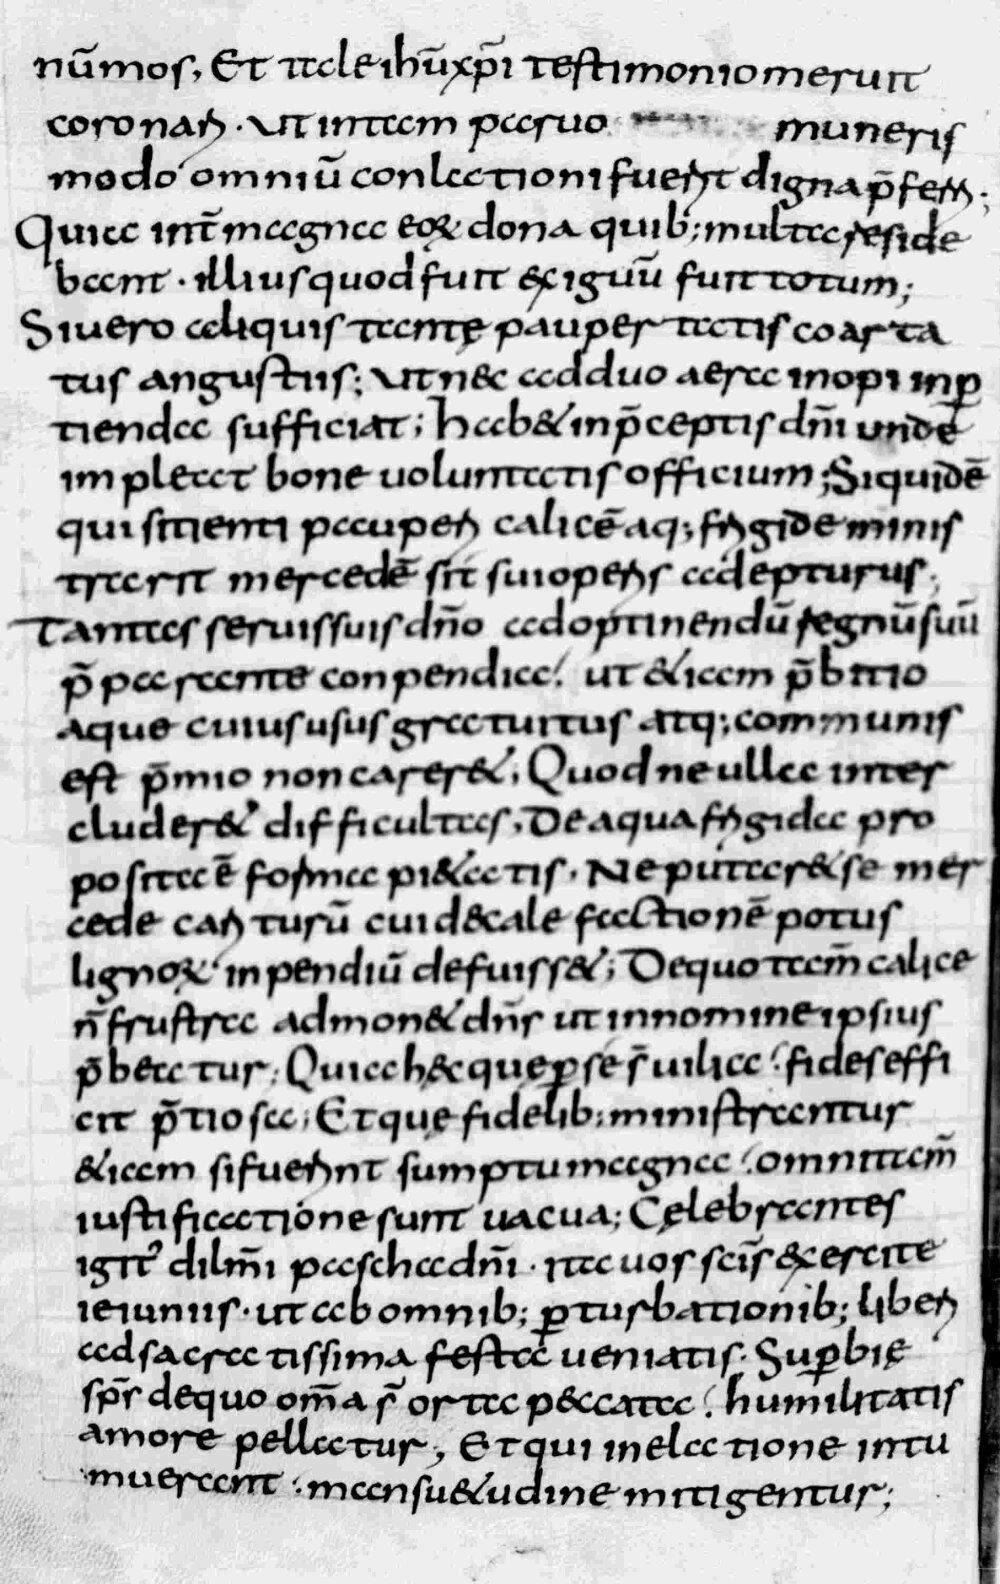 nūmos, Et tale ihū xp̄i testimonio meruit
coronaꝶ. Ut in tam paruo muneris
modo omniū conlationi fuerꝶt digna p̄ferꝶ;
Quia int̄ magna eoꝝ dona quib; multa reside
bant. illius quod fuit exiguū fuit totum;
Si uero aliquis tantę paupertatis coarta
tus angustiis; Ut nec ad duo aera inopi inꝑ
tienda sufficiat; hab& in p̄ceptis dn̄i unde
impleat bone uoluntatis officium; Siquidē
qui sitienti pauperꝶ calicē aq; frꝶgide minis
trarit mercedē sit sui operꝶs adepturus;
Tantas seruis suis dn̄o ad optinendū regnū suū
p̄parante conpendia. ut &iam p̄bitio
aque cuius usus gratuitus atq; communis
est p̄mio non carer&; Quod ne ulla inter
cluder& difficultas, De aqua frꝶgida pro
posita ē forma pi&atis. Ne putar& se mer
cede carꝶturū cui ad calefactionē potus
lignoꝝ inpendiū defuiss&; De quo tam̄ calice
n̄ frustra admon& dn̄s ut in nomine ipsius
p̄beatur; Quia hęc quę ꝑ se s̄ uilia. fides effi
cit p̄tiosa; Et quę fidelib; ministrantur
&iam si fuerꝶnt sumptu magna. omni tam̄
iustificatione sunt uacua; Cęlebrantes
igit᷒ dilm̄i pascha dn̄i. ita uos scīs exercite
ieiuniis. ut ab omnib; ꝑturbationib; liberꝶ
ad sacratissima festa ueniatis. Suꝑbię
sp̄s de quo om̄a s̄ orta peccata. humilitatis
amore pellatur, Et qui in elatione intu
muerant. mansu&udine mitigentur;